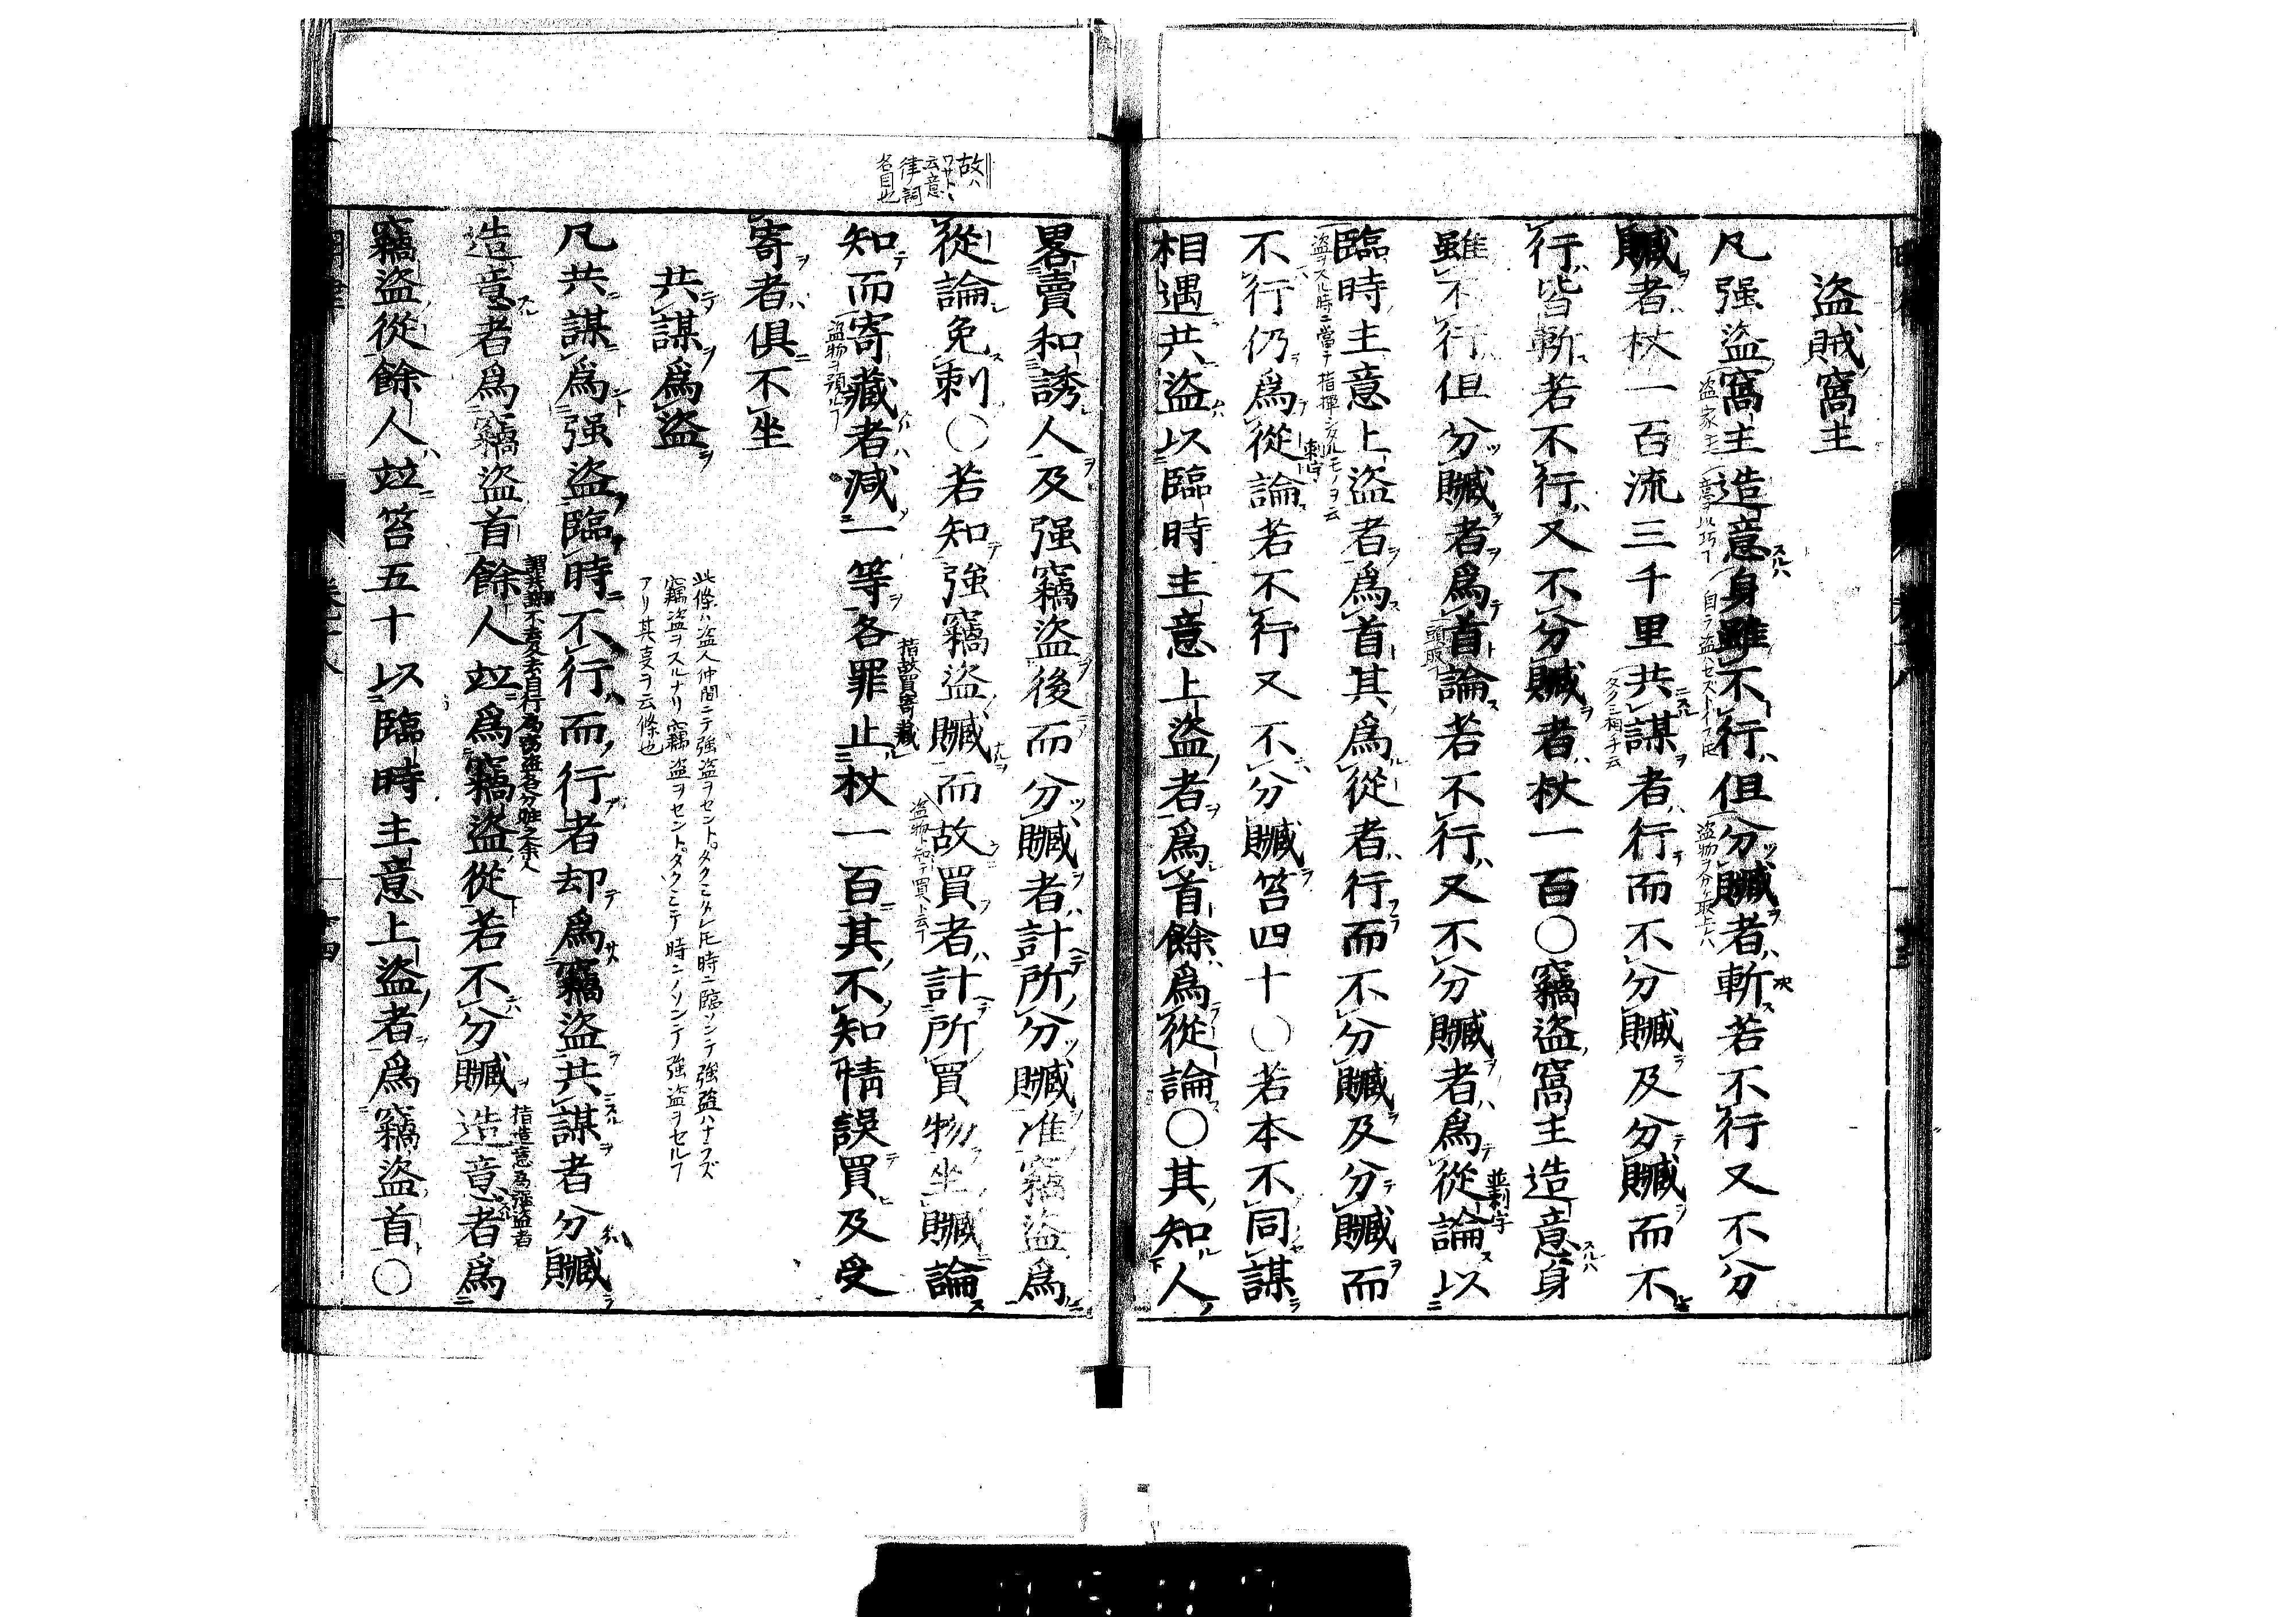 盜賊窩主
凡强盜窩主造意身雖不行但分贓者斬若不行又不分
贓者杖一百流三千里共謀者行而不分贓及分贓而不
行皆斬若不行又不分贓者杖一百○竊盜窩主造意身
雖不行但分贓者爲首論若不行又不分贓者爲從論以
臨時主意上盜者爲首其爲從者行而不分贓及分贓而
不行仍爲從論若不行又不分贓笞四十○若本不同謀
相遇共盜以臨時主意上盜者爲首餘爲從論○其知人
故ハ
云意
律詞
名目也
畧賣和誘人及强竊盜後而分贓者計所分贓准竊盜爲
從論免刺○若知強竊盜贓而故買者計所買物坐贓論
知而寄藏者減一等各罪止杖一百其不知情誤買及受
指故買寄藏
盜物ヲ預ルヿ
寄者俱不坐
共謀爲盜
此條ハ盜人仲間ニテ強盜ヲセントタクミタレ𪜈時ニ臨ソンテ強盜ハナラズ
竊盜ヲスルナリ竊盜ヲセントタクミテ時ニノソンテ強盜ヲセルヿ
アリ其変ヲ云條也
凡共謀爲强盜臨時不行而行者却爲竊盜共謀者分贓
造意者爲竊盜首餘人竝爲竊盜從若不分贓造意者爲
指造意爲强盜者
竊盜從餘人竝笞五十以臨時主意上盜者爲竊盜首○